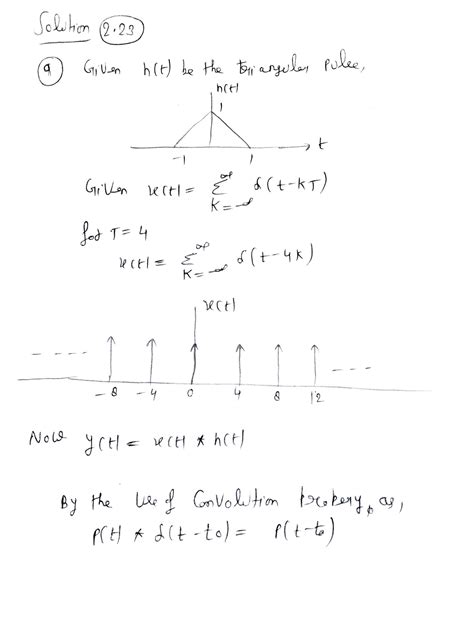 Solution 2.23
(a) Given h(t) be the triangular pulse,
h(t)
1
-1 1 t
Given x(t) = ∞ Σ K=-∞ δ(t-kT)
for T = 4
x(t) = ∞ Σ K=-∞ δ(t-4K)
x(t)
---- -8 -4 0 4 8 12 ---
Now y(t) = x(t) * h(t)
By the use of Convolution propery, as,
p(t) * δ(t-t0) = p(t-t0)